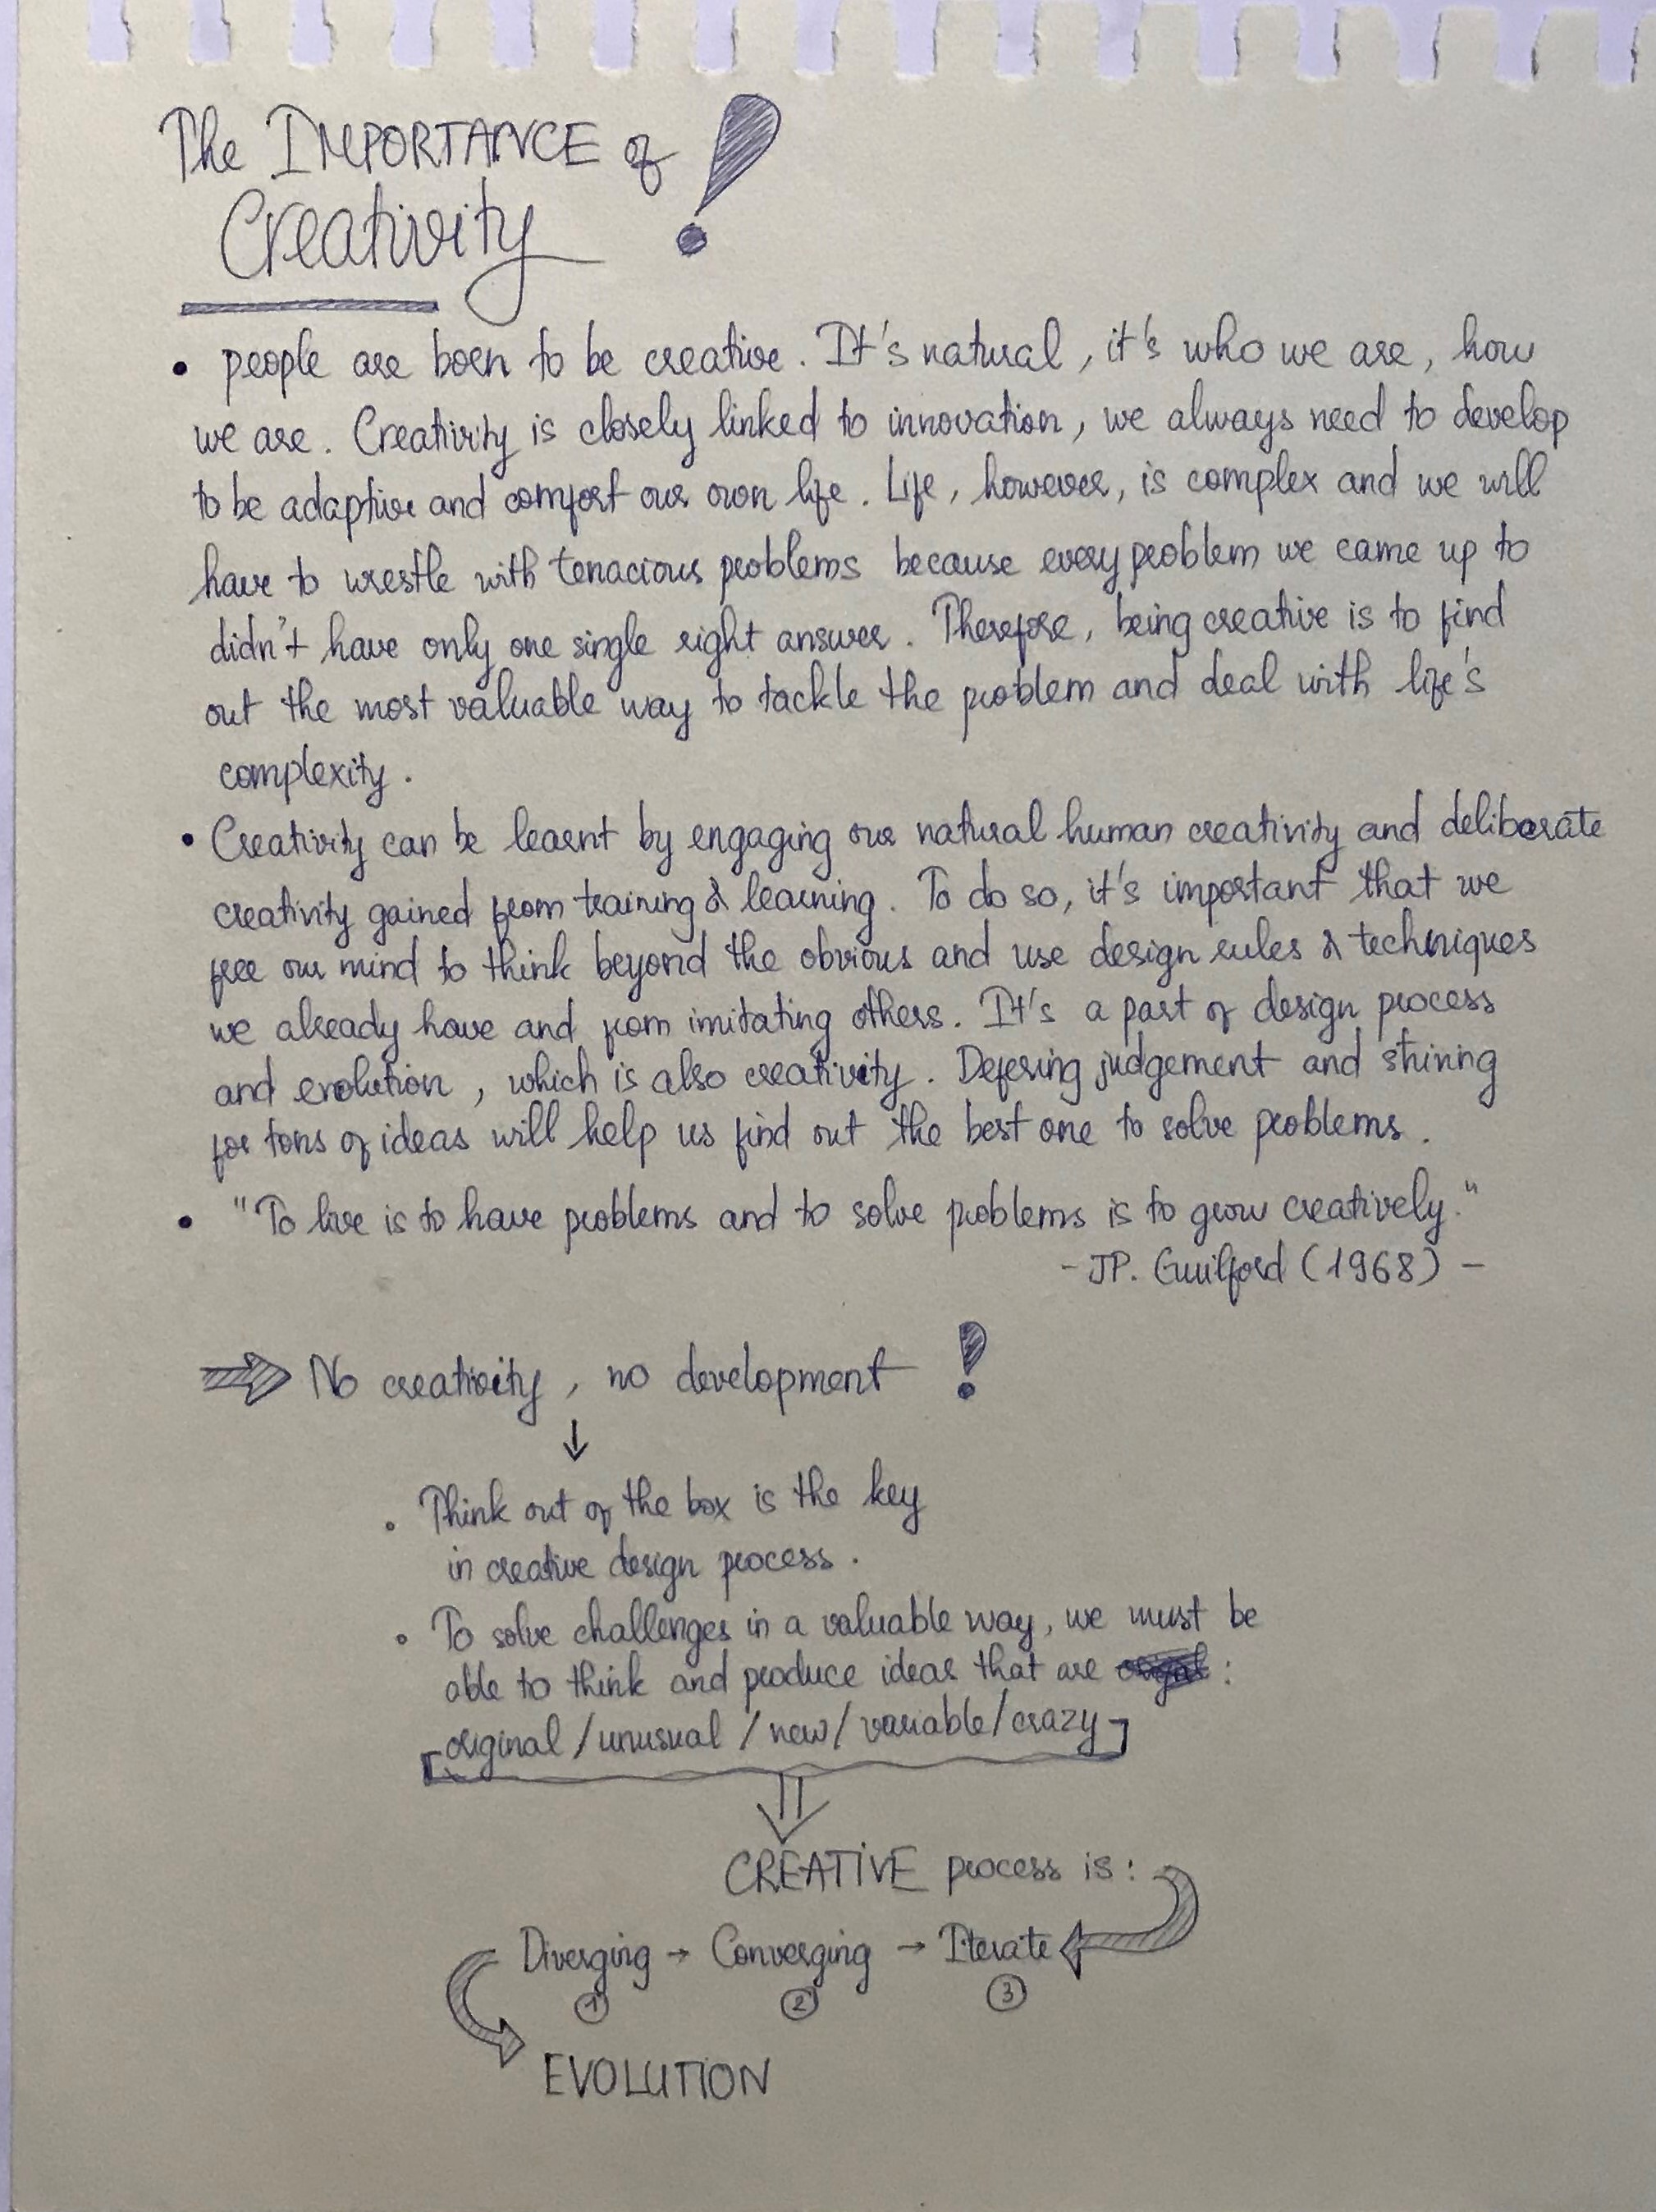 The IMPORTANCE of !
Creativity
• people are born to be creative. It's natural, it's who we are, how
we are. Creativity is closely linked to innovation, we always need to develop
to be adaptive and comfort our own life. Life, however, is complex and we will
have to wrestle with tenacious problems because every problem we came up to
didn't have only one single right answer. Therefore, being creative is to find
out the most valuable way to tackle the problem and deal with life's
complexity.
• Creativity can be learnt by engaging our natural human creativity and deliberate
creativity gained from training & learning. To do so, it's important that we
free our mind to think beyond the obvious and use design rules & techniques
we already have and from imitating others. It's a part of design process
and evolution, which is also creativity. Defering judgement and striving
for tons of ideas will help us find out the best one to solve problems.
• "To live is to have problems and to solve problems is to grow creatively."
- JP. Guilford (1968) -
⇒ No creativity, no development !
↓
• Think out of the box is the key
in creative design process.
• To solve challenges in a valuable way, we must be
able to think and produce ideas that are :
original / unusual / new / variable / crazy
⇓
CREATIVE process is :
Diverging → Converging → Iterate
① ② ③
EVOLUTION